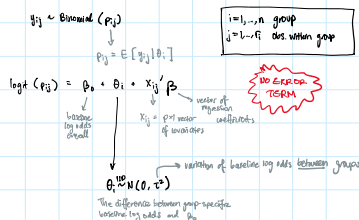 yij ~ Binomial (pij)
i = 1, ..., n group
j = 1, ..., ri obs. within group
pij = E [yij | θi]
logit (pij) = β0 + θi + xij' β
NO ERROR
TERM
baseline
log odds
overall
xij = p×1 vector
of covariates
vector of
regression
coefficients
θi iid~ N(0, τ²)
variation of baseline log odds between groups
The difference between group-specific
baseline log odds and β0